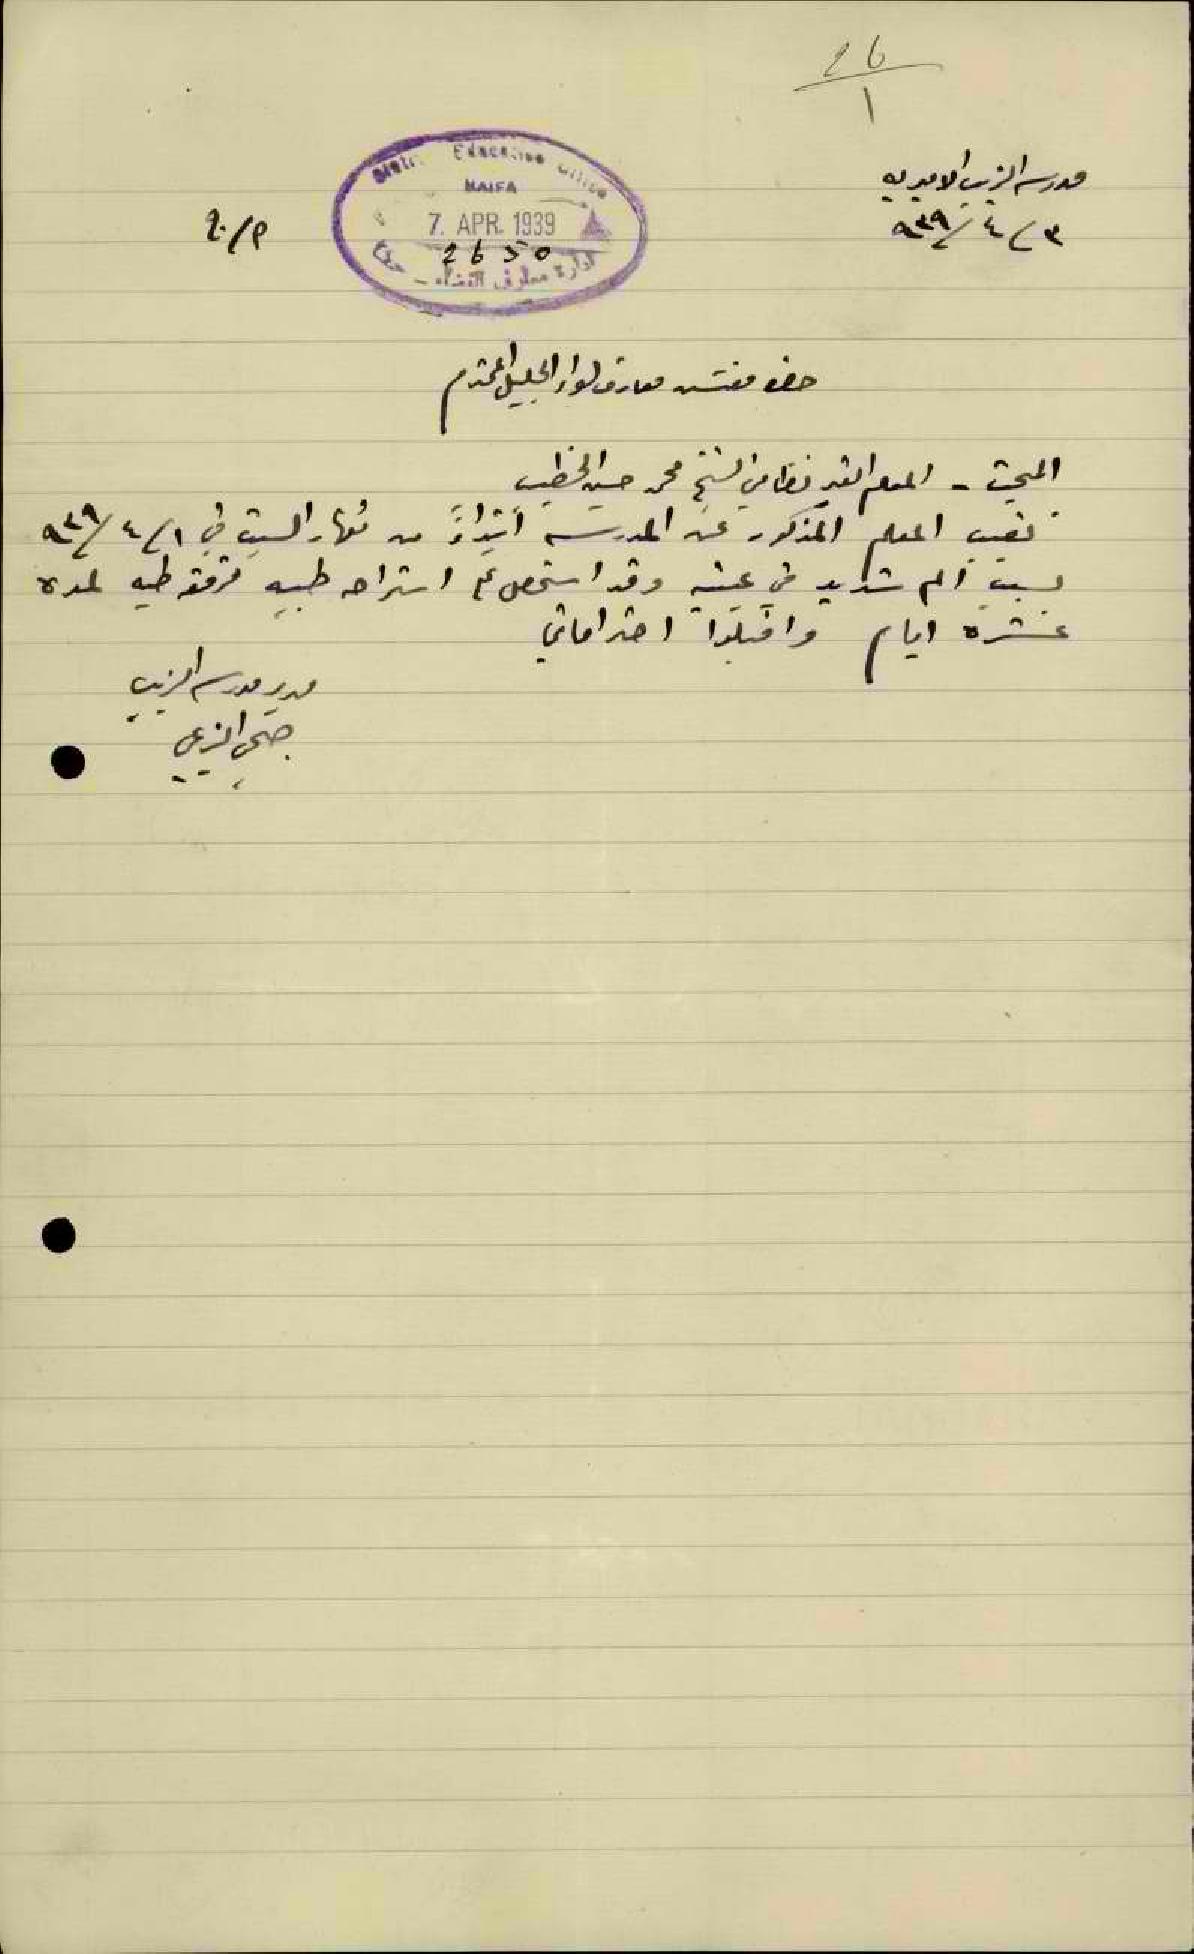 26
1
مدرسة الزيب الاميريه
٣/٤/٩٣٩
District Education Office
HAIFA
7. APR. 1939
2650
ادارة معارف القضاء - حيفا
حضرة مفتش معارف لواء الجليل المحترم
المبحث - المعلم الغير نظامي الشيخ محمد حسين الخطيب
تغيب المعلم المذكور عن المدرسة ابتداءً من نهار السبت في ١/٤/٩٣٩
بسبب الم شديد في عينيه وقد استحصل على استراحه طبيه مرفقه طيه لمدة
عشرة ايام واقبلوا احتراماتي
مدير مدرسة الزيب